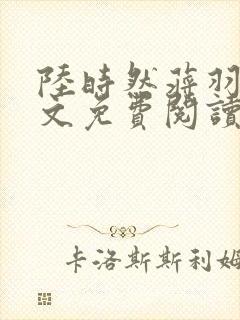 陸時然蒋羽
文免費閱讀
卡洛斯斯利姆